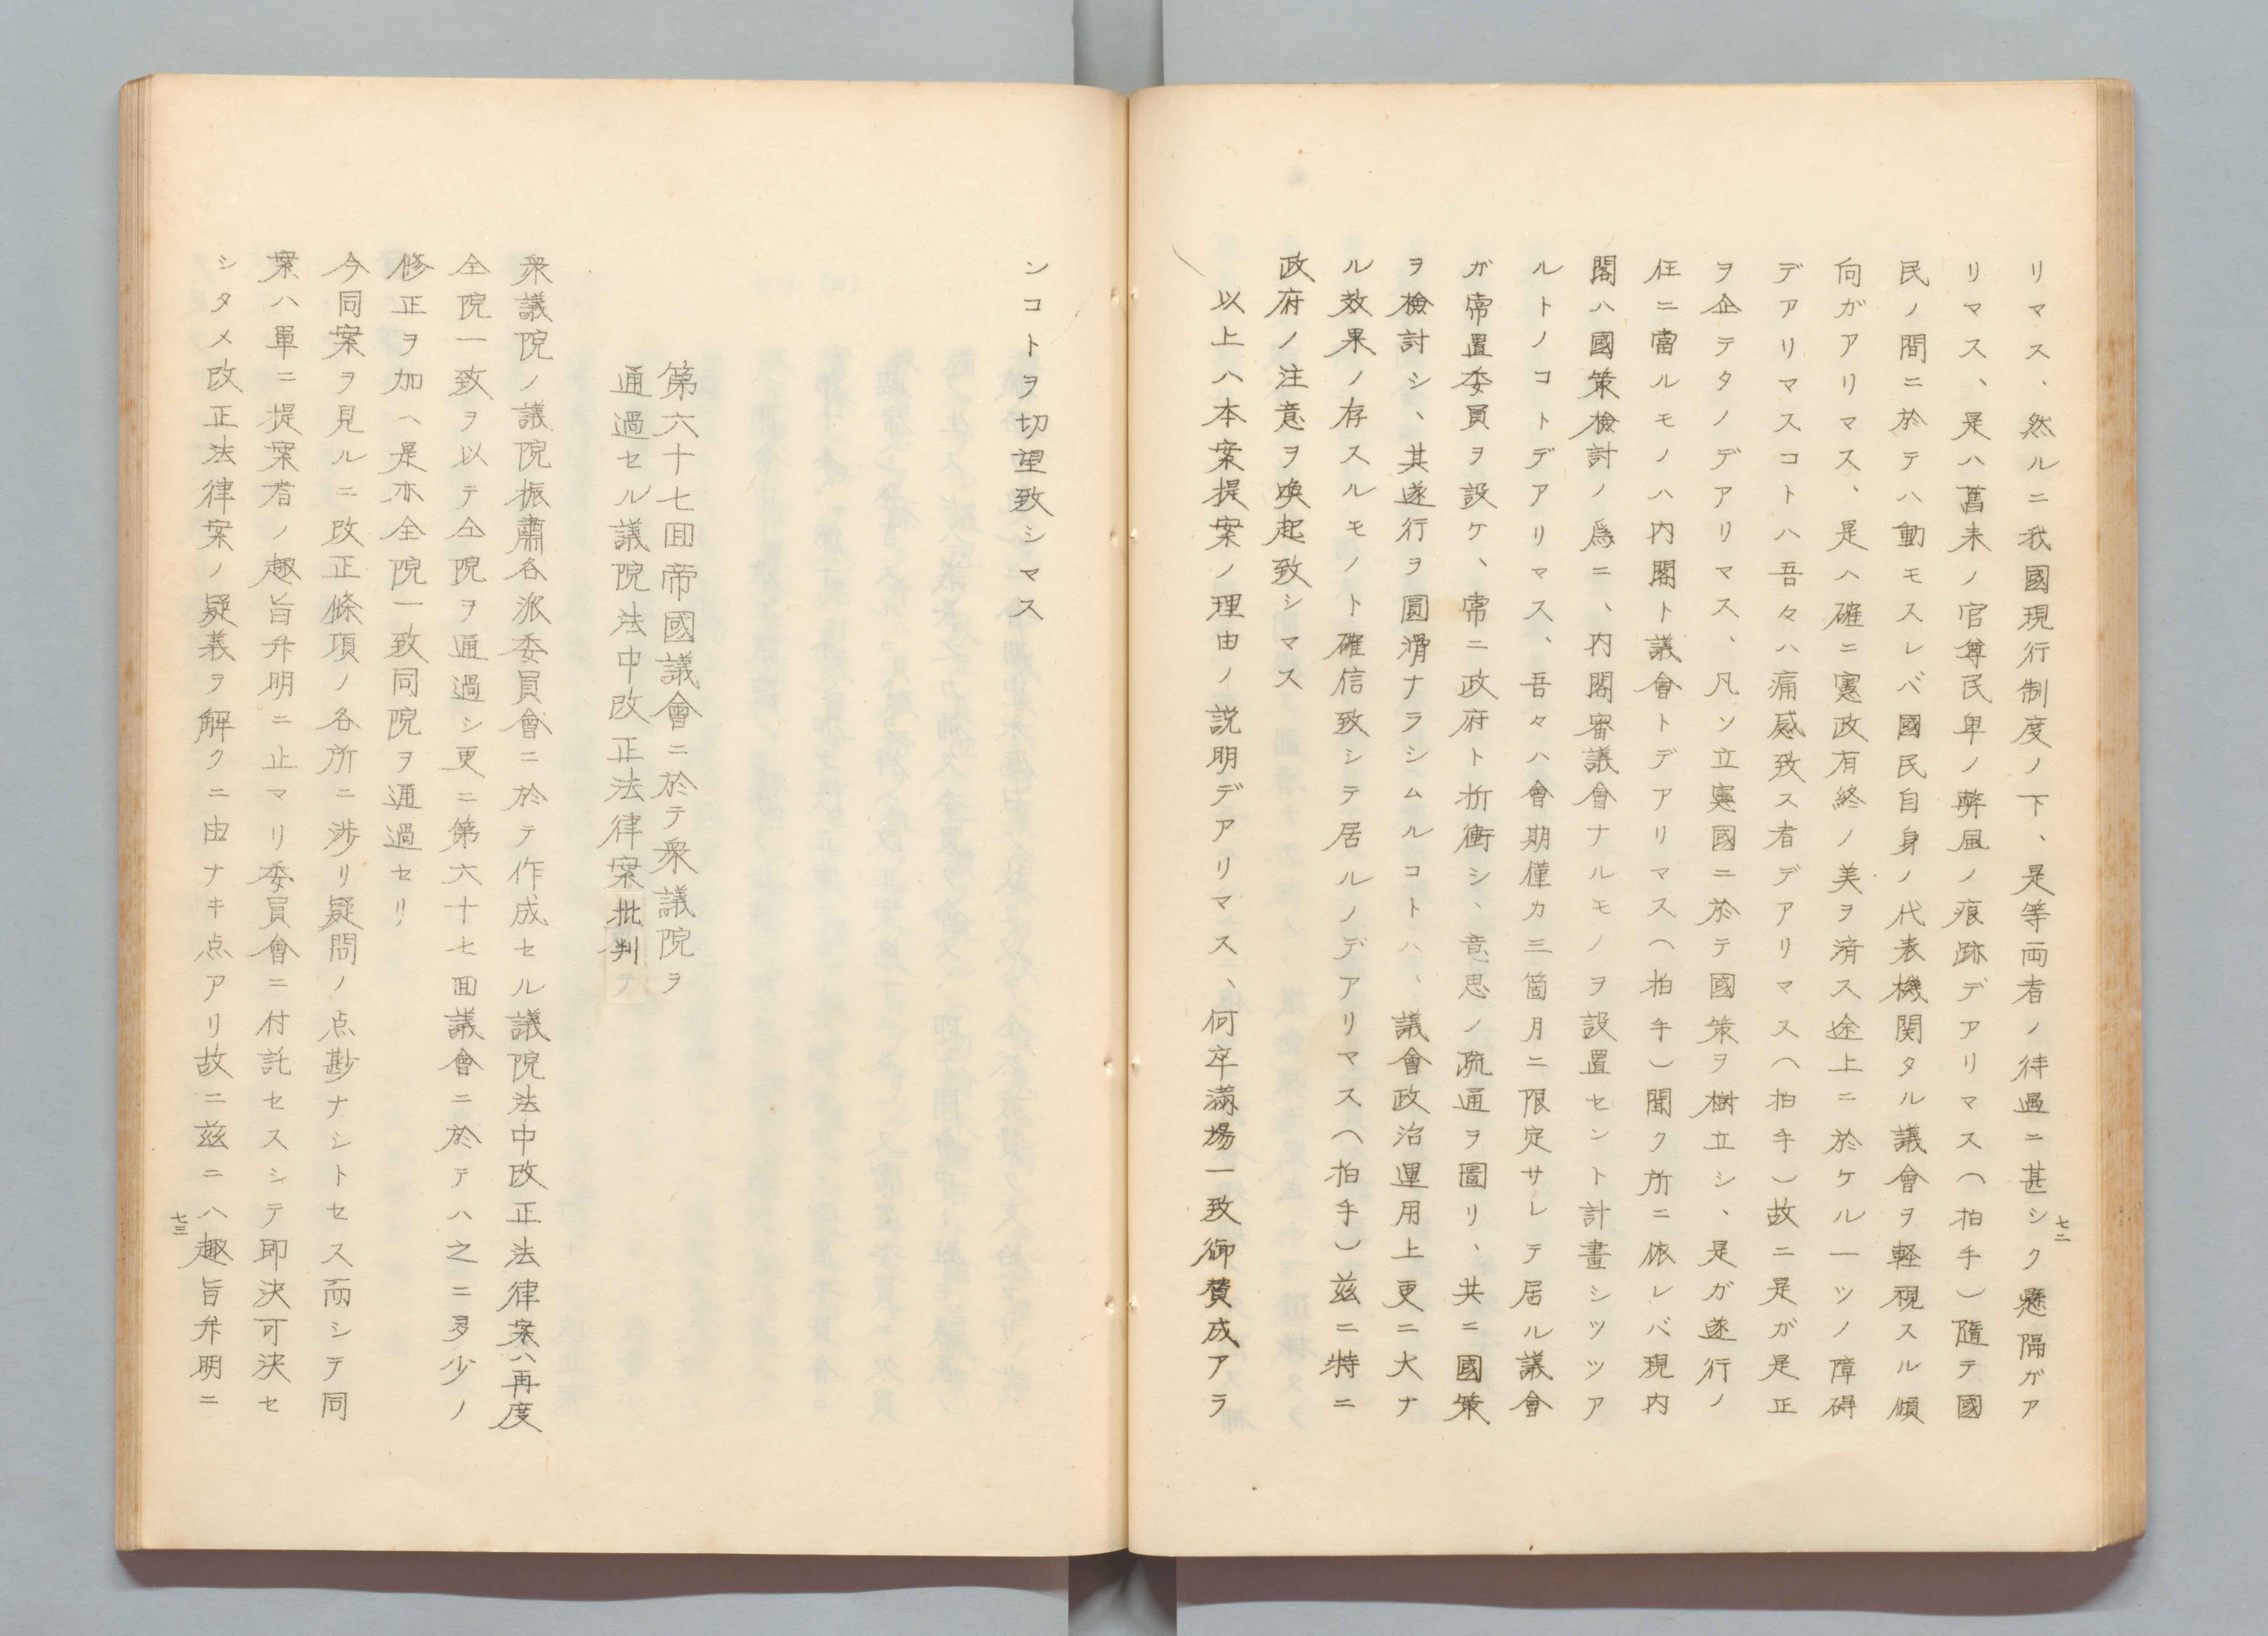 リマス、然ルニ我國現行制度ノ下、是等両者ノ待遇ニ甚シク懸隔ガア
リマス、是ハ舊来ノ官尊民卑ノ弊風ノ痕跡デアリマス(拍手)随テ國
民ノ間ニ於テハ動モスレバ國民自身ノ代表機関タル議會ヲ軽視スル傾
向ガアリマス、是ハ確ニ憲政有終ノ美ヲ済ス途上ニ於ケル一ツノ障碍
デアリマスコトハ吾々ハ痛感致ス者デアリマス(拍手)故ニ是ガ是正
ヲ企テタノデアリマス、凡ソ立憲國ニ於テ國策ヲ樹立シ、是ガ遂行ノ
任ニ當ルモノハ内閣ト議會トデアリマス(拍手)聞ク所ニ依レバ現内
閣ハ國策検討ノ為ニ、内閣審議會ナルモノヲ設置セント計畫シツツア
ルトノコトデアリマス、吾々ハ會期僅カ三箇月ニ限定サレテ居ル議會
ガ常置委員ヲ設ケ、常ニ政府ト折衝シ、意思ノ疏通ヲ圖リ、共ニ國策
ヲ檢討シ、其遂行ヲ圓滑ナラシムルコトハ、議會政治運用上更ニ大ナ
ル效果ノ存スルモノト確信致シテ居ルノデアリマス(拍手)茲ニ特ニ
政府ノ注意ヲ喚起致シマス
以上ハ本案提案ノ理由ノ説明デアリマス、何卒滿場一致御賛成アラ
七二
ンコトヲ切望致シマス
第六十七囬帝國議會ニ於テ衆議院ヲ
通過セル議院法中改正法律案批判
衆議院ノ議院振肅各派委員會ニ於テ作成セル議院法中改正法律案ハ再度
全院一致ヲ以テ仝院ヲ通過シ更ニ第六十七囬議會ニ於テハ之ニ多少ノ
修正ヲ加ヘ是亦全院一致同院ヲ通過セリ
今同案ヲ見ルニ改正條項ノ各所ニ渉リ疑問ノ点尠ナシトセス而シテ同
案ハ單ニ提案者ノ趣旨弁明ニ止マリ委員會ニ付託セスシテ即決可決セ
シタメ改正法律案ノ疑義ヲ解クニ由ナキ点アリ故ニ茲ニハ趣旨弁明ニ
七三